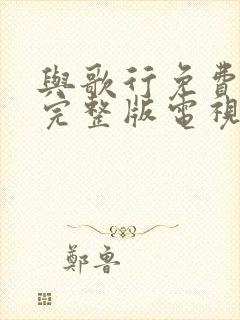 與歌行免費
完整版電視
鄭魯